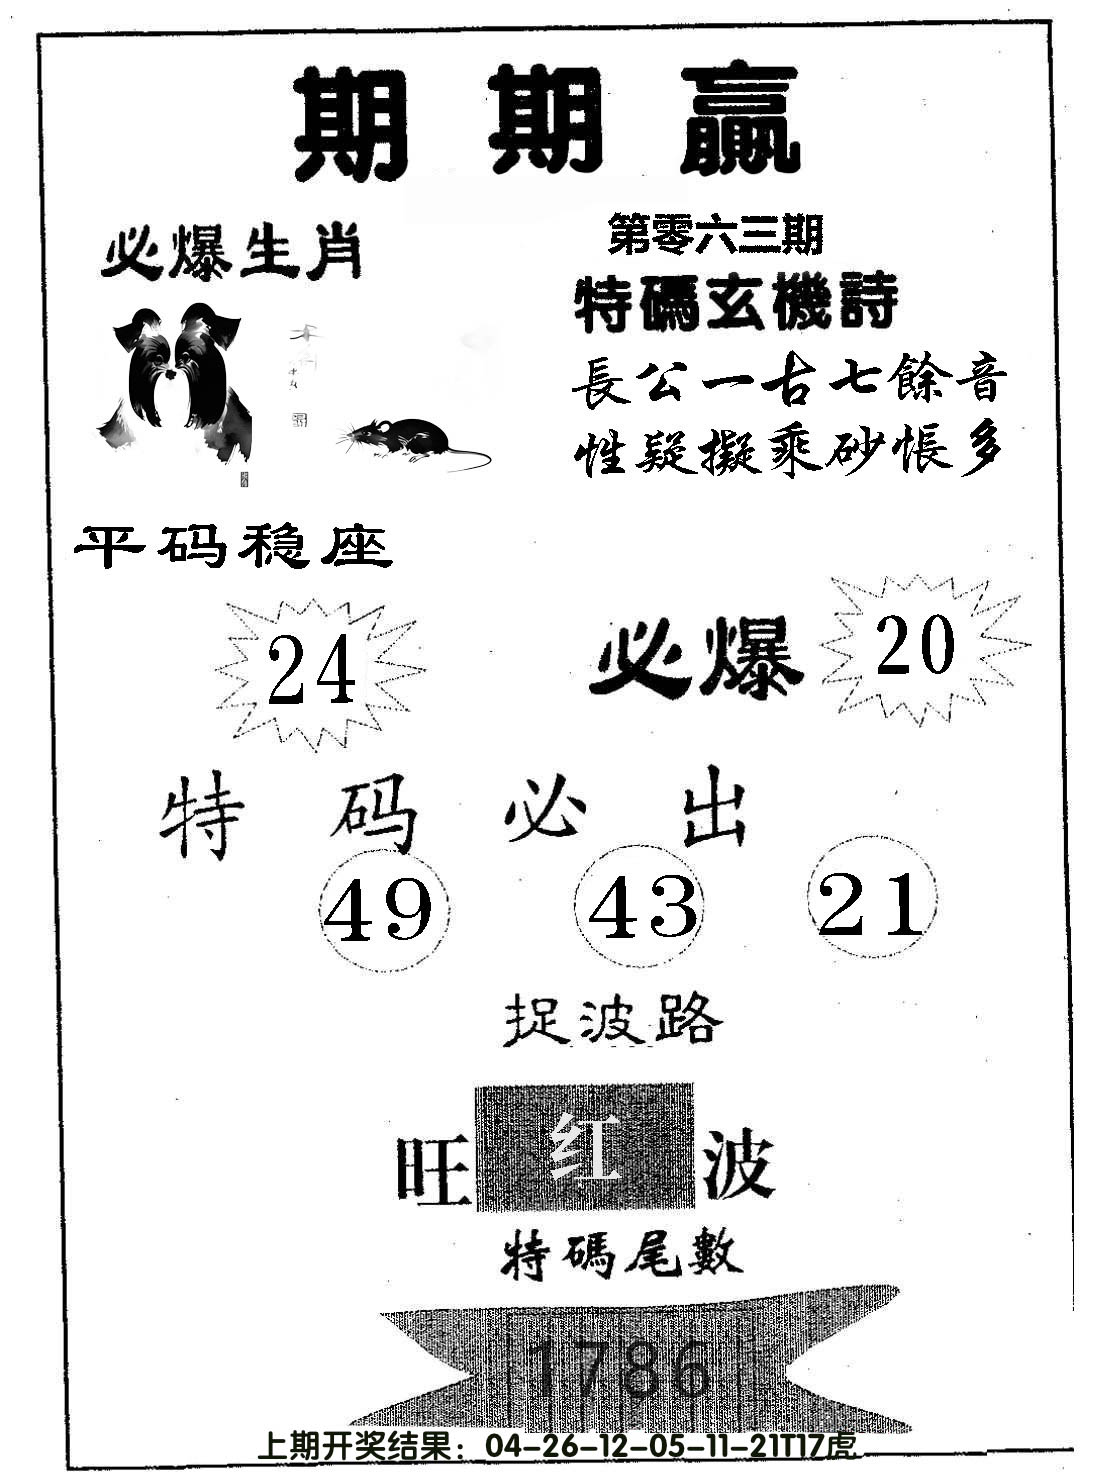 期期贏
必爆生肖
第零六三期
特碼玄機詩
長公一古七餘音
性疑擬乘砂悵多
平码稳座
24
必爆 20
特码必出
49 43 21
捉波路
旺红波
特碼尾數
1786
上期开奖结果：04-26-12-05-11-21T17虎